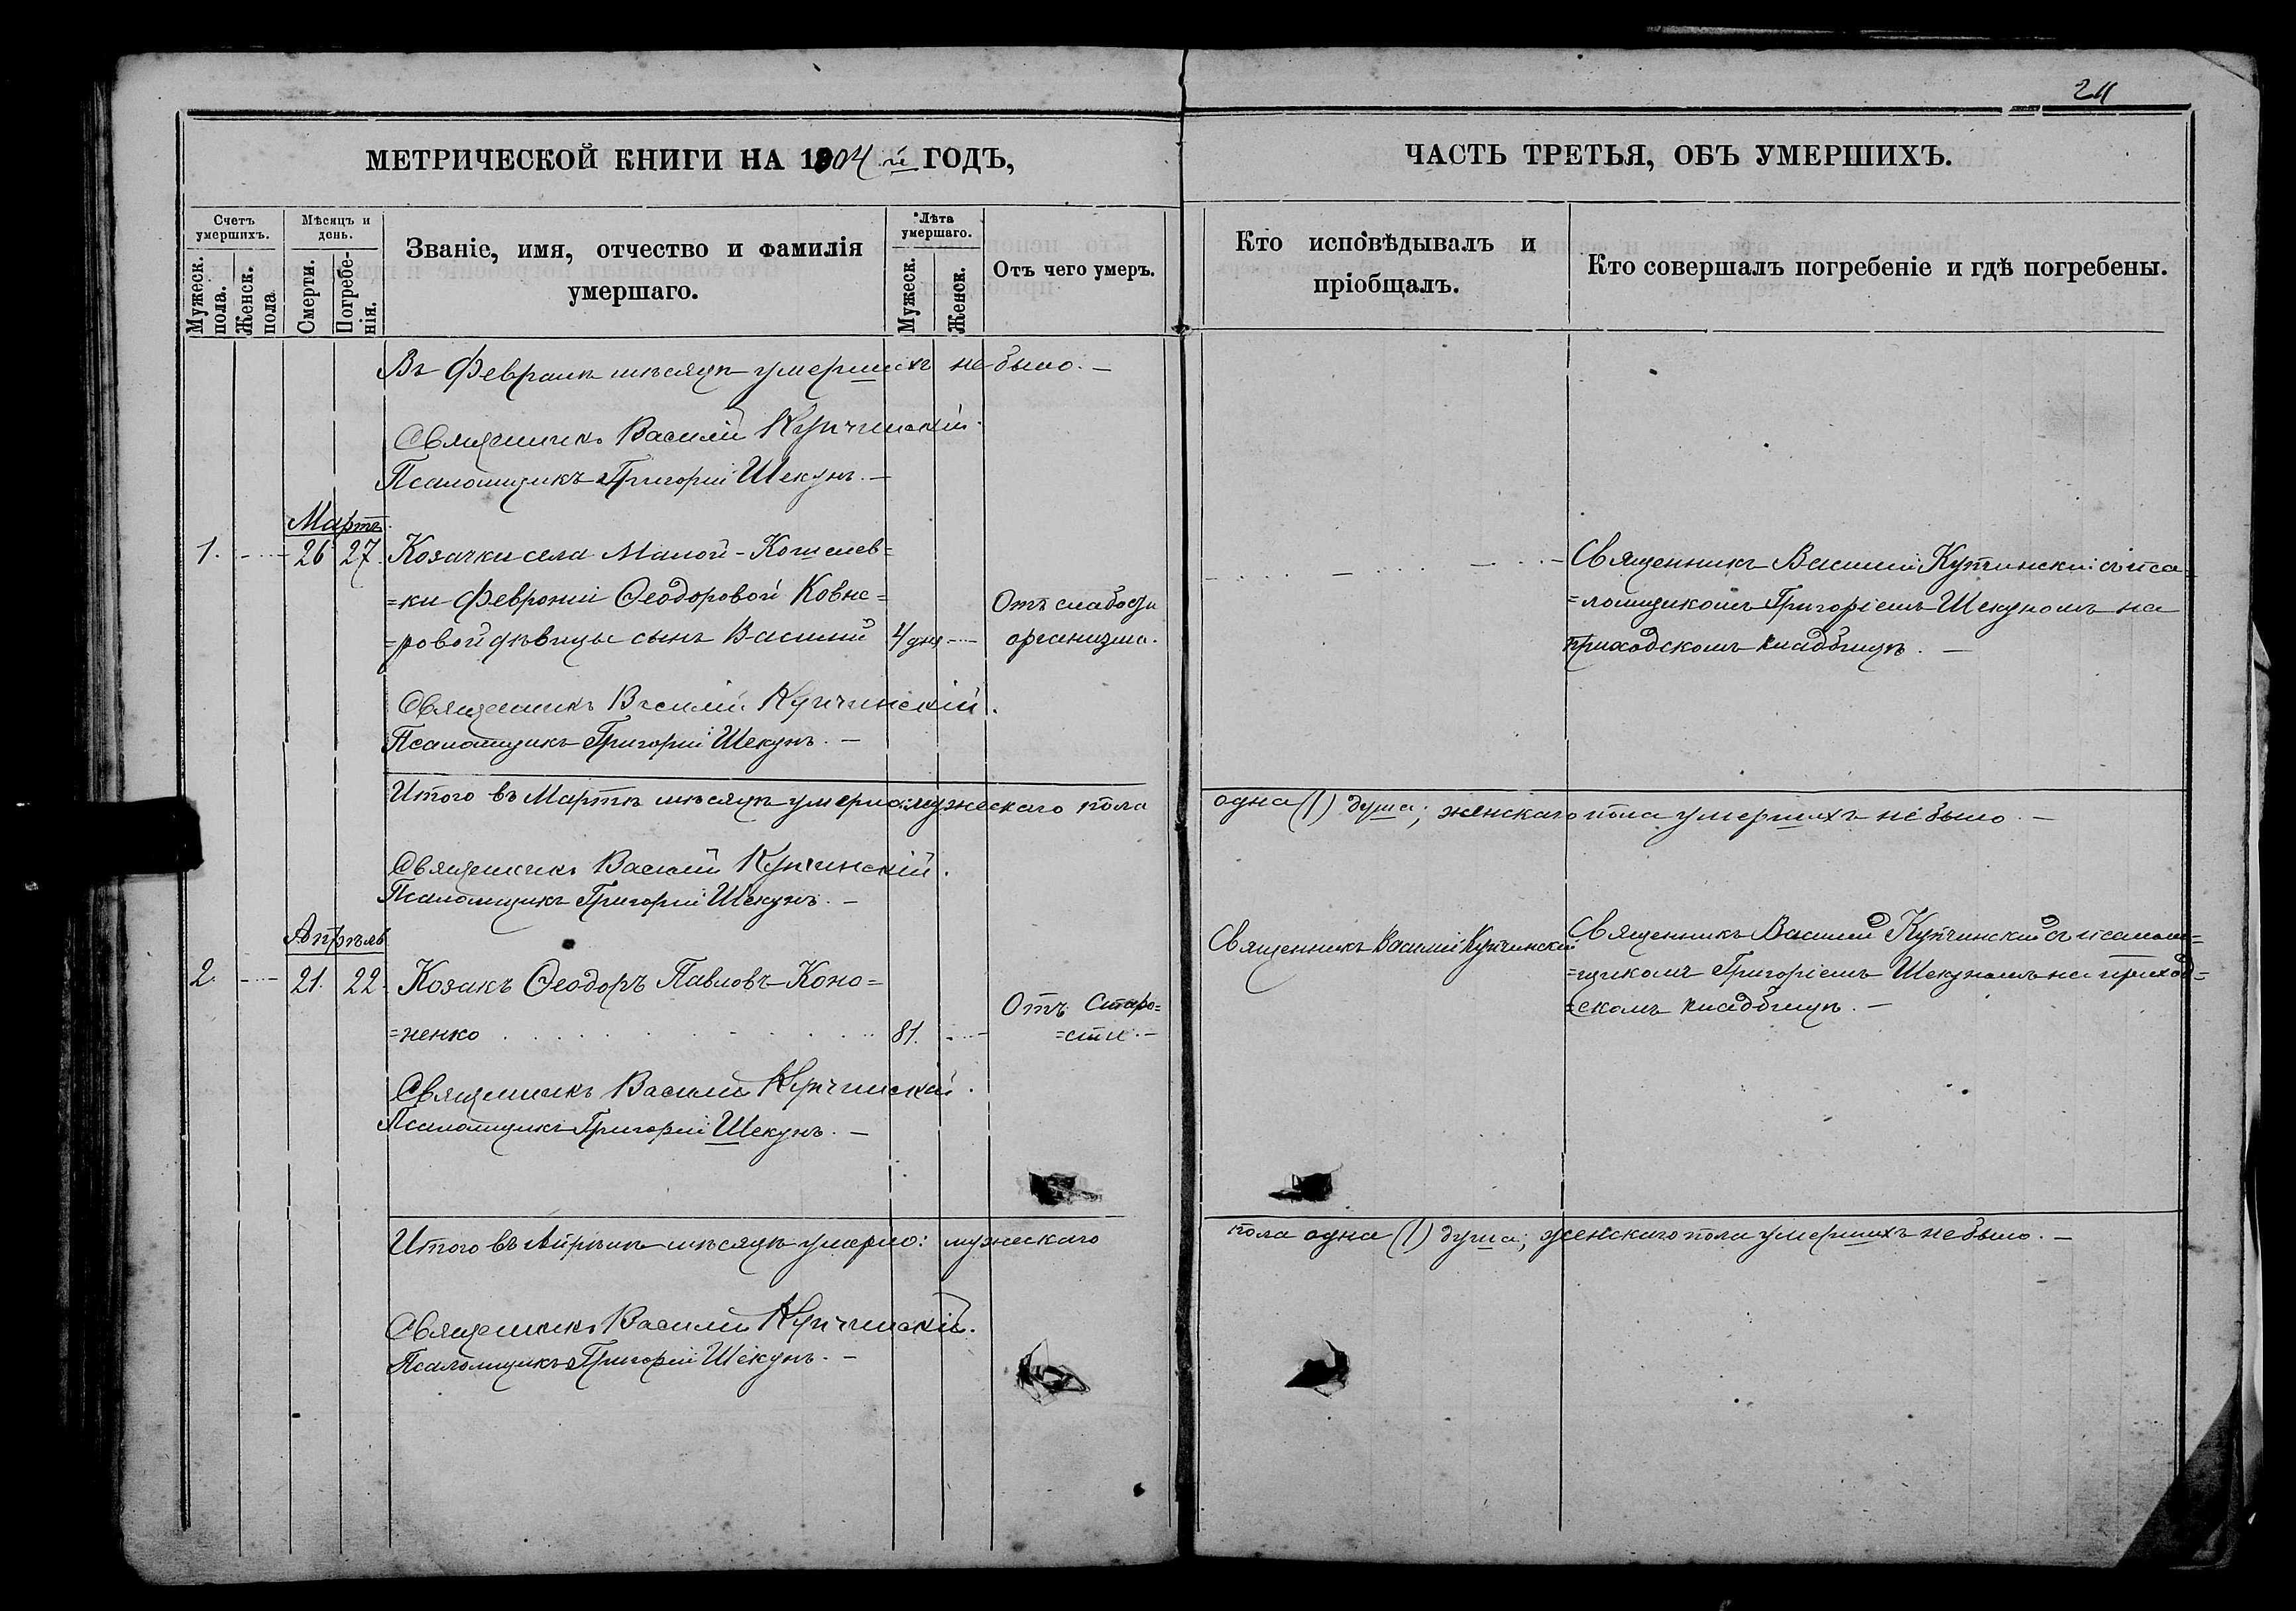 24
МЕТРИЧЕСКОЙ КНИГИ НА 1904 й ГОДЪ,
ЧАСТЬ ТРЕТЬЯ, ОБЪ УМЕРШИХЪ.
Счетъ умершихъ.
Мужеск. пола.
Женск. пола
Мѣсяцъ и день.
Смерти.
Погребе-
нія.
Званіе, имя, отчество и фамилія
умершаго.
Лѣта умершаго.
Мужеск.
Женск.
Отъ чего умеръ.
Кто исповѣдывалъ и
пріобщалъ.
Кто совершалъ погребеніе и гдѣ погребены.
Въ Февралѣ мѣсяцѣ умершихъ не было. —
Священникъ Василій Купчинскій.
Псаломщикъ Григорій Шекунъ. —
Мартъ.
1. - - 26 27. Козачки села Малой-Кошелев=
=ки Февроніи Ѳеодоровой Ковне=
=ровой дѣвицы сынъ Василій 4 дня - -
Отъ слабости
организма.
Священникъ Василій Купчинскій съ пса
=ломщикомъ Григоріемъ Шекуномъ на
приходскомъ кладбищѣ. —
Священникъ Василій Купчинскій.
Псаломщикъ Григорій Шекунъ. —
Итого въ Мартѣ мѣсяцѣ умерло: мужескаго пола
одна (1) душа; женскаго пола умершихъ не было. —
Священникъ Василій Купчинскій.
Псаломщикъ Григорій Шекунъ. —
Апрѣль
2. - - 21. 22. Козакъ Ѳеодоръ Павловъ Коно=
=ненко 81. - -
Отъ Старо=
=сти. —
Священникъ Василій Купчинскій
Священникъ Василій Купчинскій съ псалом=
=щикомъ Григоріемъ Шекуномъ на приход=
=скомъ кладбищѣ. —
Священникъ Василій Купчинскій.
Псаломщикъ Григорій Шекунъ. —
Итого въ Апрѣлѣ мѣсяцѣ умерло: мужескаго
пола одна (1) душа; женскаго пола умершихъ не было. —
Священникъ Василій Купчинскій.
Псаломщикъ Григорій Шекунъ. —